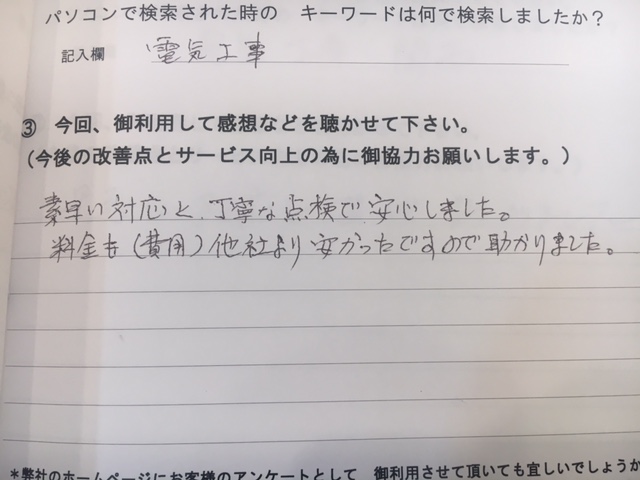 パソコンで検索された時の　キーワードは何で検索しましたか？
記入欄　電気工事
③　今回、御利用して感想などを聴かせて下さい。
（今後の改善点とサービス向上の為に御協力お願いします。）
素早い対応と、丁寧な点検で安心しました。
料金も（費用）他社より安かったですので助かりました。
*弊社のホームページにお客様のアンケートとして　御利用させて頂いても宜しいでしょうか